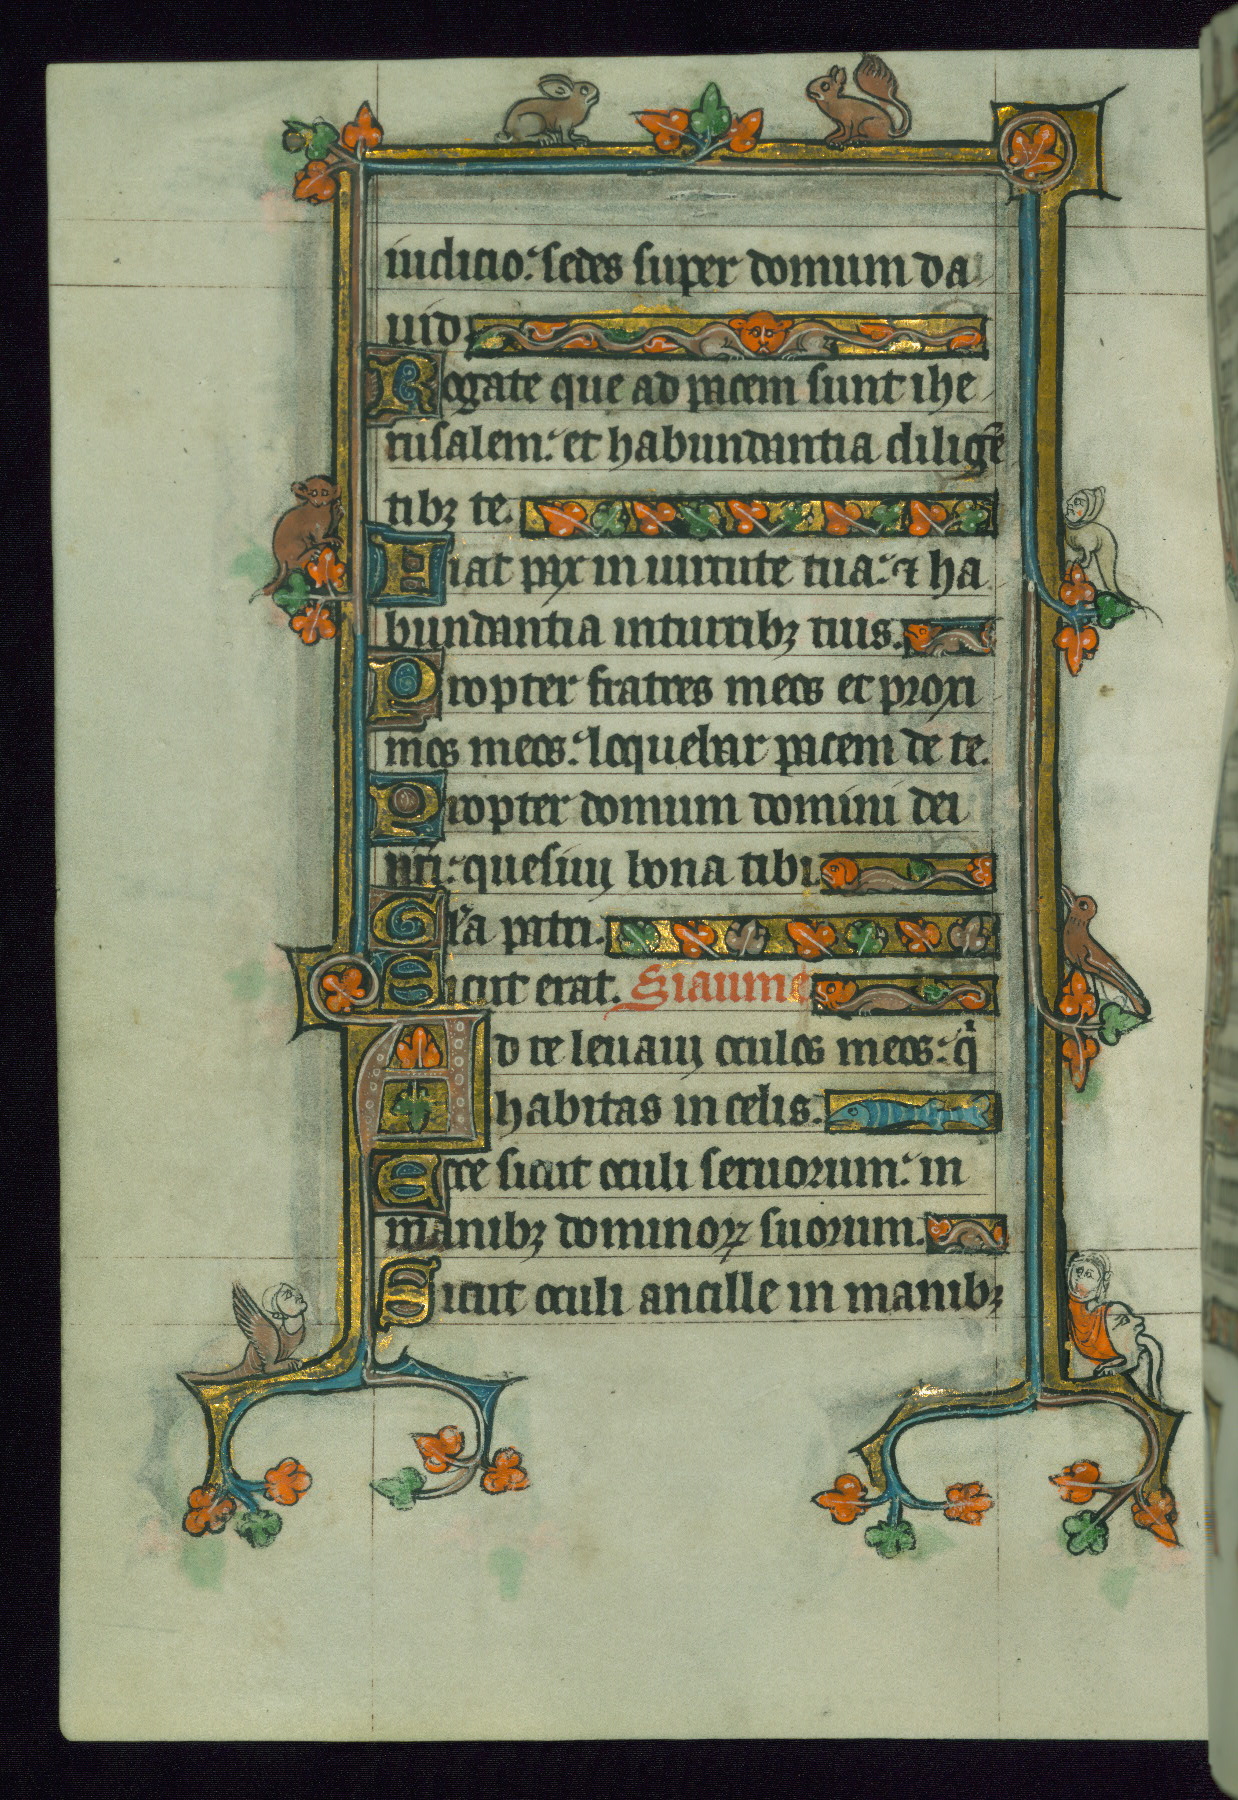 iudicio: sedes super domum da
uid
Rogate que ad pacem sunt ihe
rusalem: et habundantia diligē
tibꝫ te.
Fiat pax in uirtute tua: ⁊ ha
bundantia in turribꝫ tuis.
Propter fratres meos et proxi
mos meos: loquebar pacem de te.
Propter domum domini dei
nr̄i: quesiuj bona tibi
Gl̄a patri.
Sicut erat. Siaume
Ad te leuauj oculos meos: qͥ
habitas in celis.
Ecce sicut oculi seruorum: in
manibꝫ dominoꝝ suorum.
Sicut oculi ancille in manibꝫ